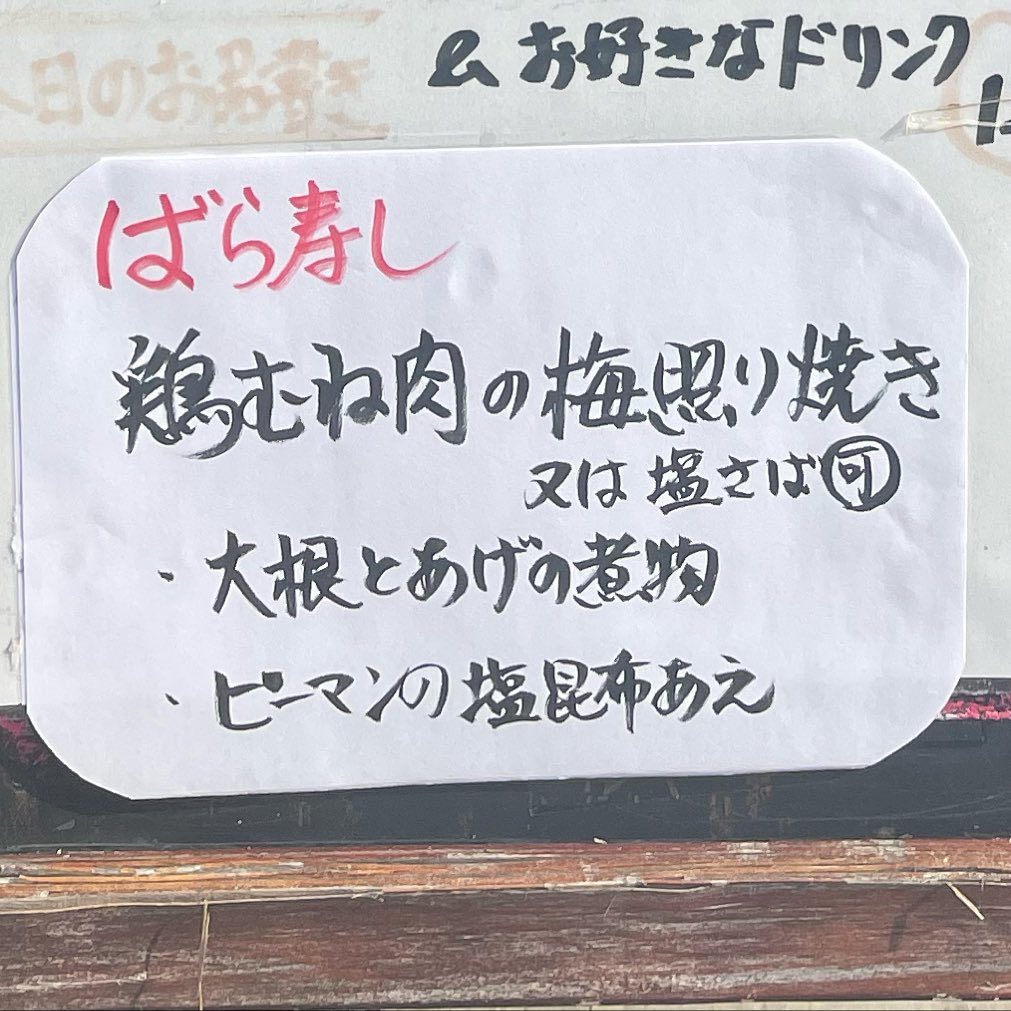 & お好きなドリンク
日のお品書き
ばら寿し
鶏むね肉の梅照り焼き
又は塩さば可
・大根とあげの煮物
・ピーマンの塩昆布あえ